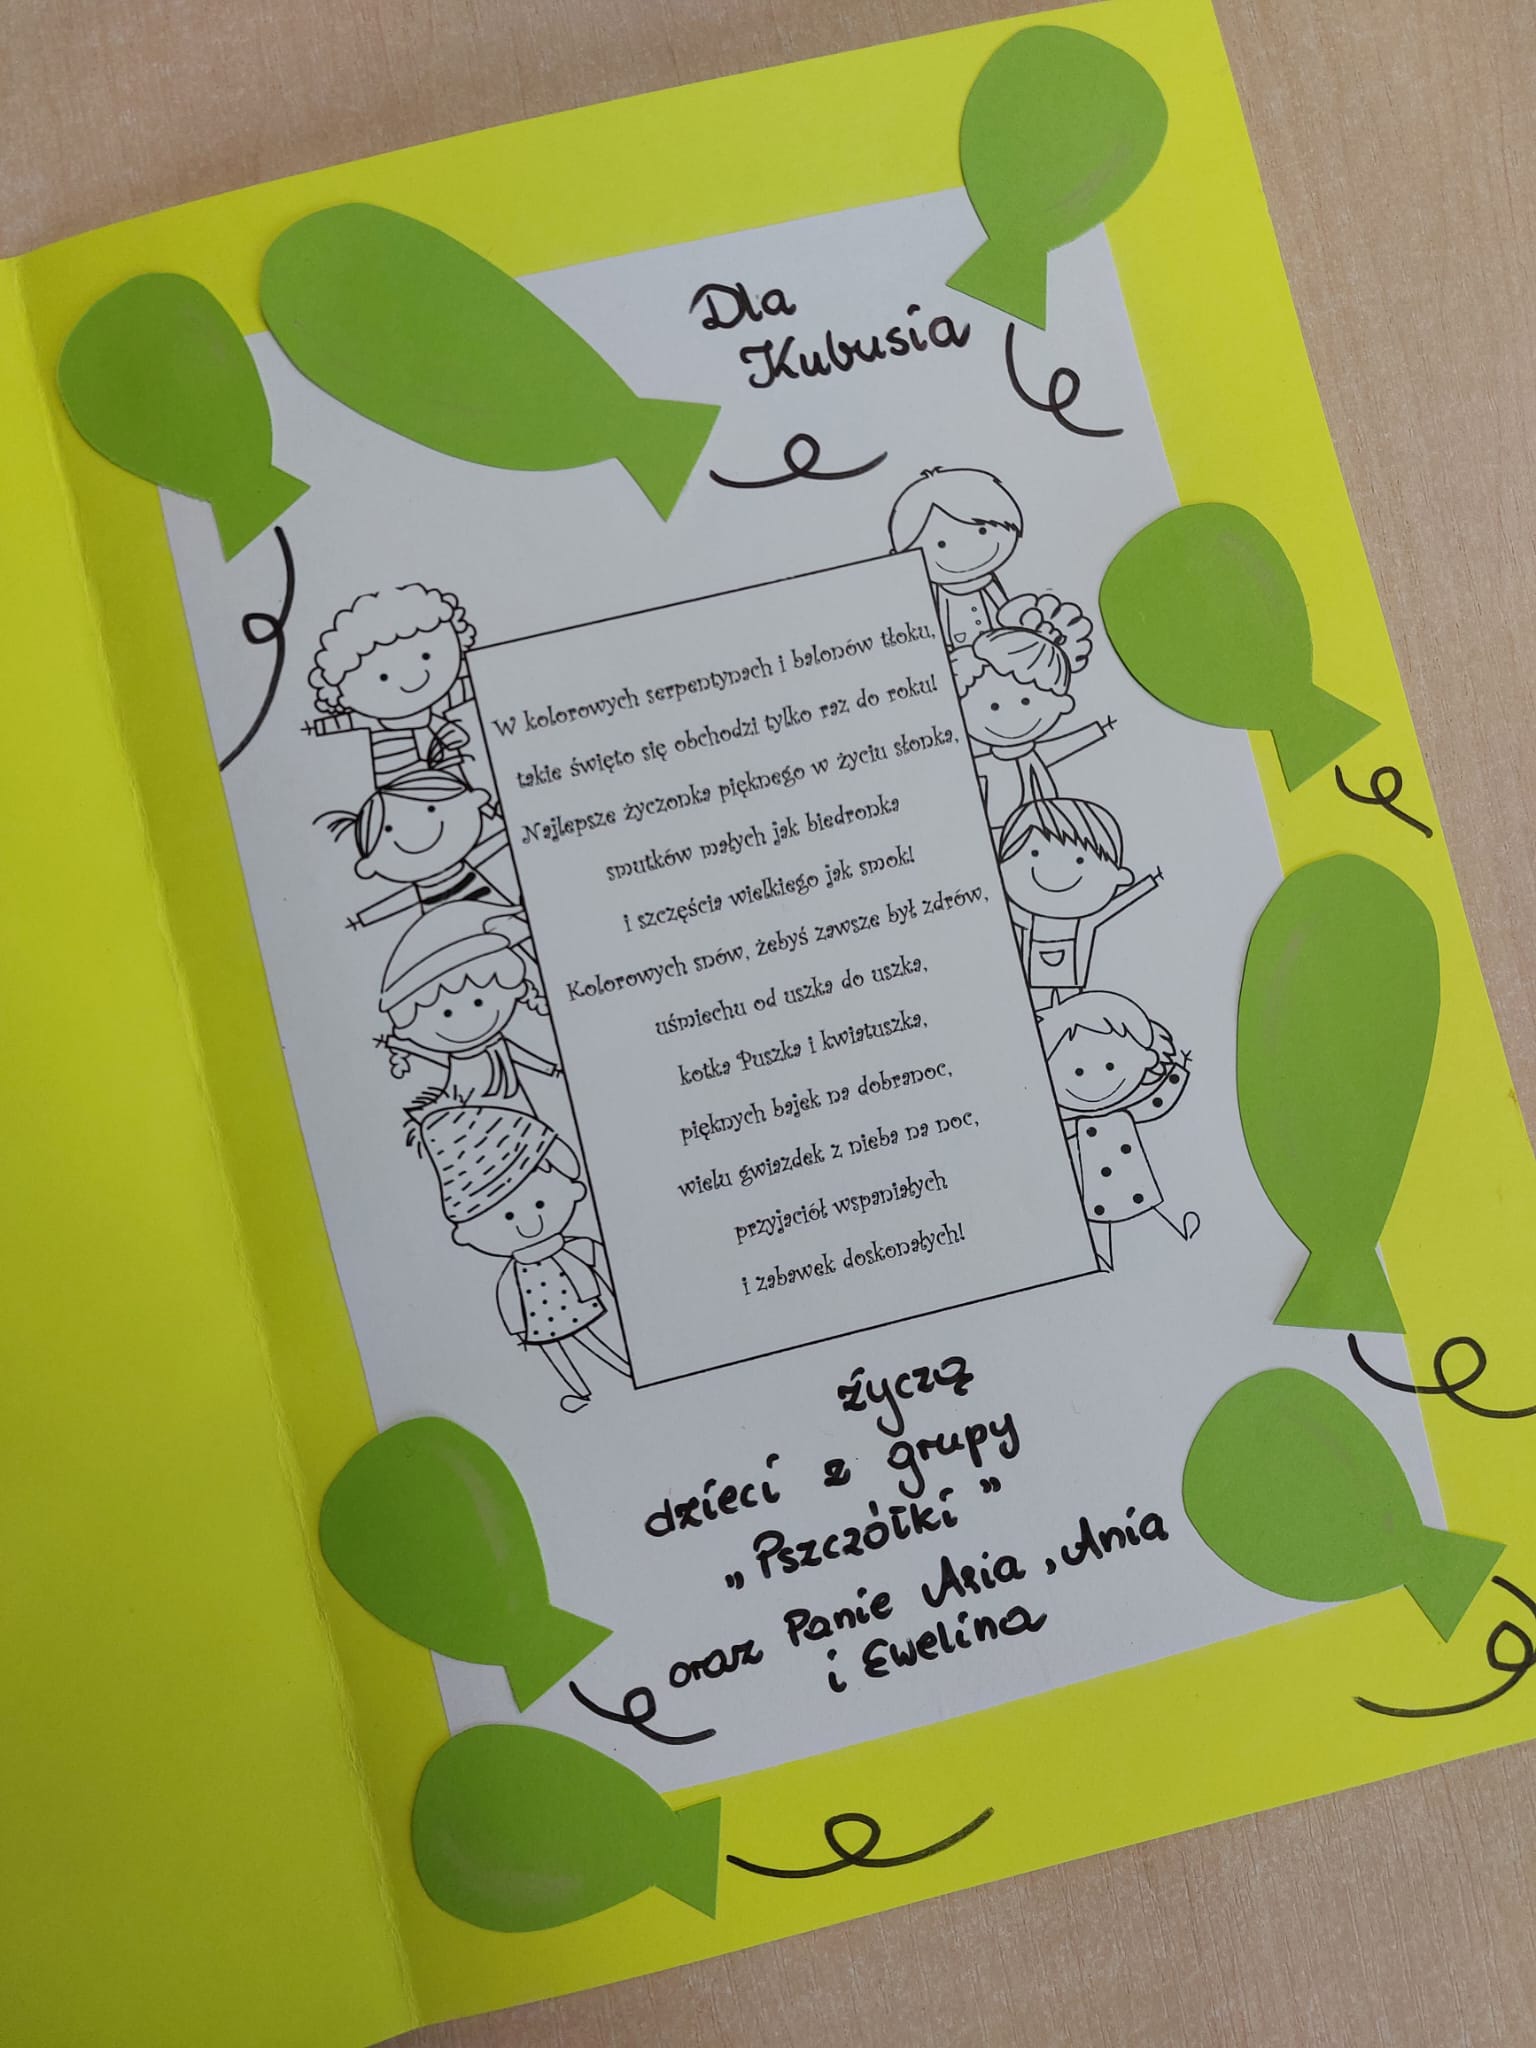 Dla
Kubusia
W kolorowych serpentynach i balonów tłoku,
takie święto się obchodzi tylko raz do roku!
Najlepsze życzonka pięknego w życiu słonka,
smutków małych jak biedronka
i szczęścia wielkiego jak smok!
Kolorowych snów, żebyś zawsze był zdrów,
uśmiechu od uszka do uszka,
kotka Puszka i kwiatuszka,
pięknych bajek na dobranoc,
wielu gwiazdek z nieba na noc,
przyjaciół wspaniałych
i zabawek doskonałych!
życzą
dzieci z grupy
„Pszczółki"
oraz Panie Asia, Ania
i Ewelina